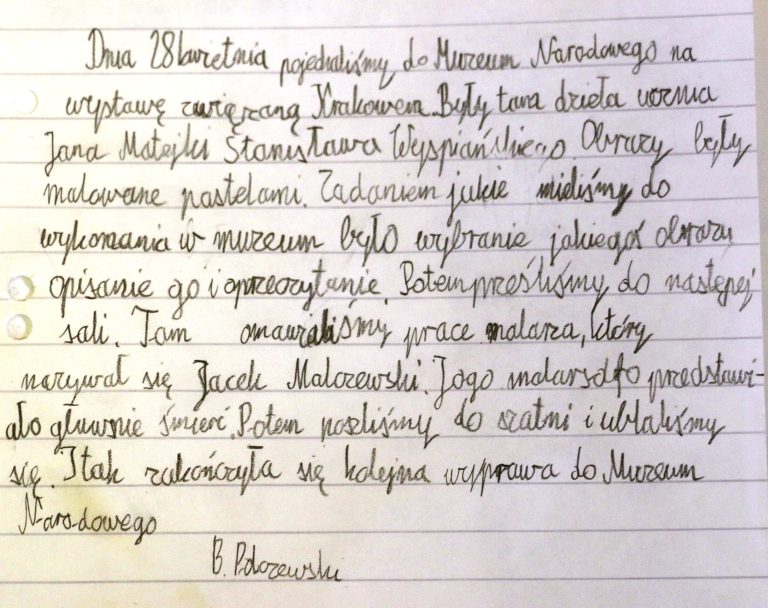 Dnia 28 kwietnia pojechaliśmy do Muzeum Narodowego na
wystawę związaną Krakowem. Były tam dzieła ucznia
Jana Matejki Stanisława Wyspiańskiego. Obrazy były
malowane pastelami. Zadaniem jakie mieliśmy do
wykonania w muzeum było wybranie jakiegoś obrazu
opisanie go i oprzeczytanie. Potem prześliśmy do następej
sali. Tam omawialiśmy prace malarza, który
nazywał się Jacek Malczewski. Jogo malarsdfo przedstawi-
ało głównie śmierć. Potem poszliśmy do szatni i ubraliśmy
się. I tak zakończyła się kolejna wyprawa do Muzeum
Narodowego
B.